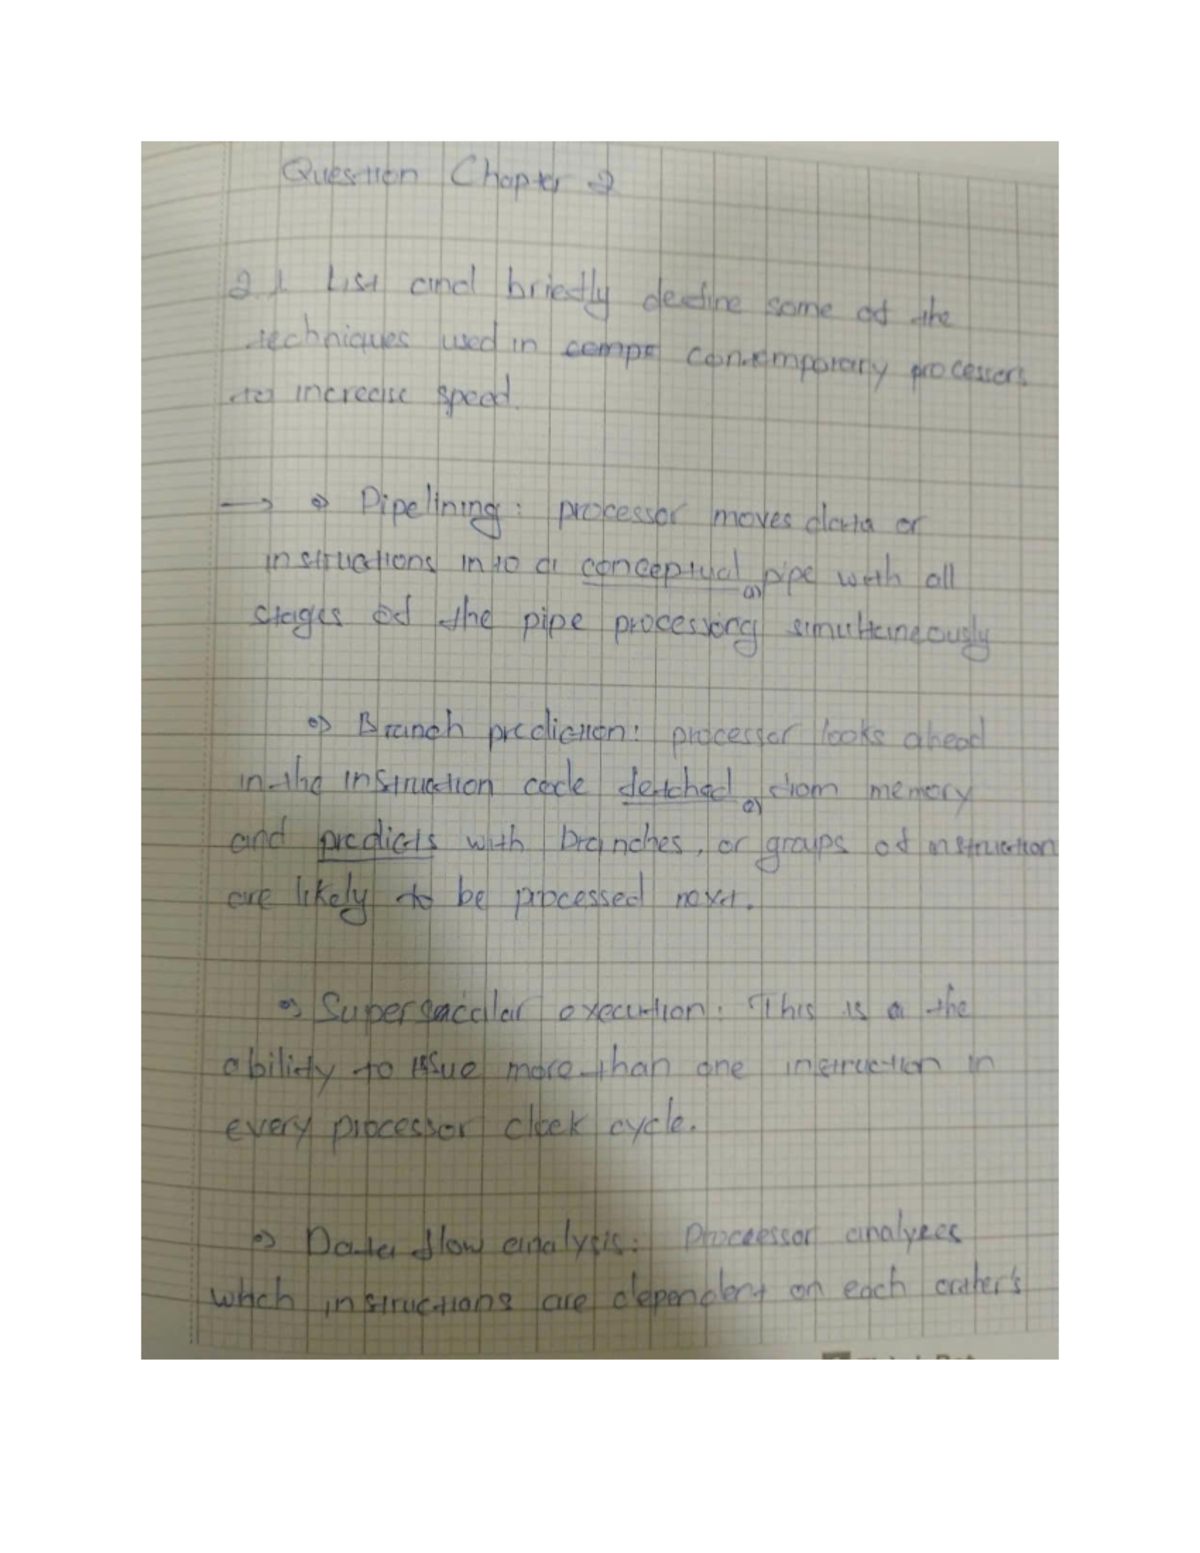 Question Chapter 2
2.1 List and briefly define some of the
techniques used in compo contemporary processors
to increase speed.
→ Pipelining: processor moves data or
instructions into a conceptual pipe with all
stages of the pipe processing simultaneously
Branch prediction: processor looks ahead
in the instruction code fetched from memory
and predicts with branches, or groups of instruction
are likely to be processed next.
Supersacalar execution: This is a the
ability to issue more than one instruction in
every processor clock cycle.
Data flow analysis: Processor analyzes
which instructions are dependent on each other's